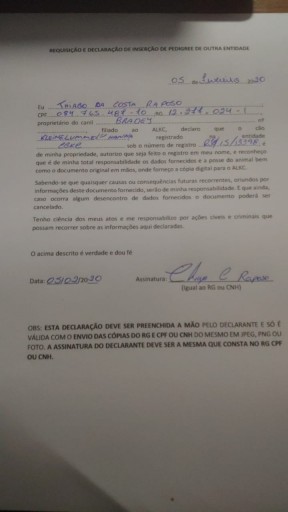 REQUISIÇÃO E DECLARAÇÃO DE INSERÇÃO DE PEDIGREE DE OUTRA ENTIDADE
05 20
Eu THIAGO DA COSTA RAPOSO
CPF RG 12.277.024-1
proprietário do canil BRADEY, or
filiado ao AUKC, declaro que o cão
registrado na entidade
sob o número de registro
de minha propriedade, autorizo que seja feito o registro em meu nome, e reconheço
que é de minha total responsabilidade os dados fornecidos e a posse do animal bem
como o documento original em mãos, onde forneço a cópia digital para o AUKC.
Sabendo se que quaisquer causas ou consequências futuras recorrentes, oriundos por
informações deste documento fornecido, serão de minha responsabilidade. E que ainda,
caso ocorra algum desencontro de dados fornecidos o documento poderá ser
cancelado.
Tenho ciência dos meus atos e me responsabilizo por ações civeis e criminais que
possam recorrer sobre as informações aqui declaradas.
O acima descrito é verdade e dou fé
Data: Assinatura Raposo
(igual ao RG ou CNH)
OBS: ESTA DECLARAÇÃO DEVE SER PREENCHIDA A MÃO PELO DECLARANTE E SÓ É
VÁLIDA COM O ENVIO DAS CÓPIAS DO RG E CPF OU CNH DO MESMO EM JPEG, PNG OU
FOTO. A ASSINATURA DO DECLARANTE DEVE SER A MESMA QUE CONSTA NO RG CPF
OU CNH.